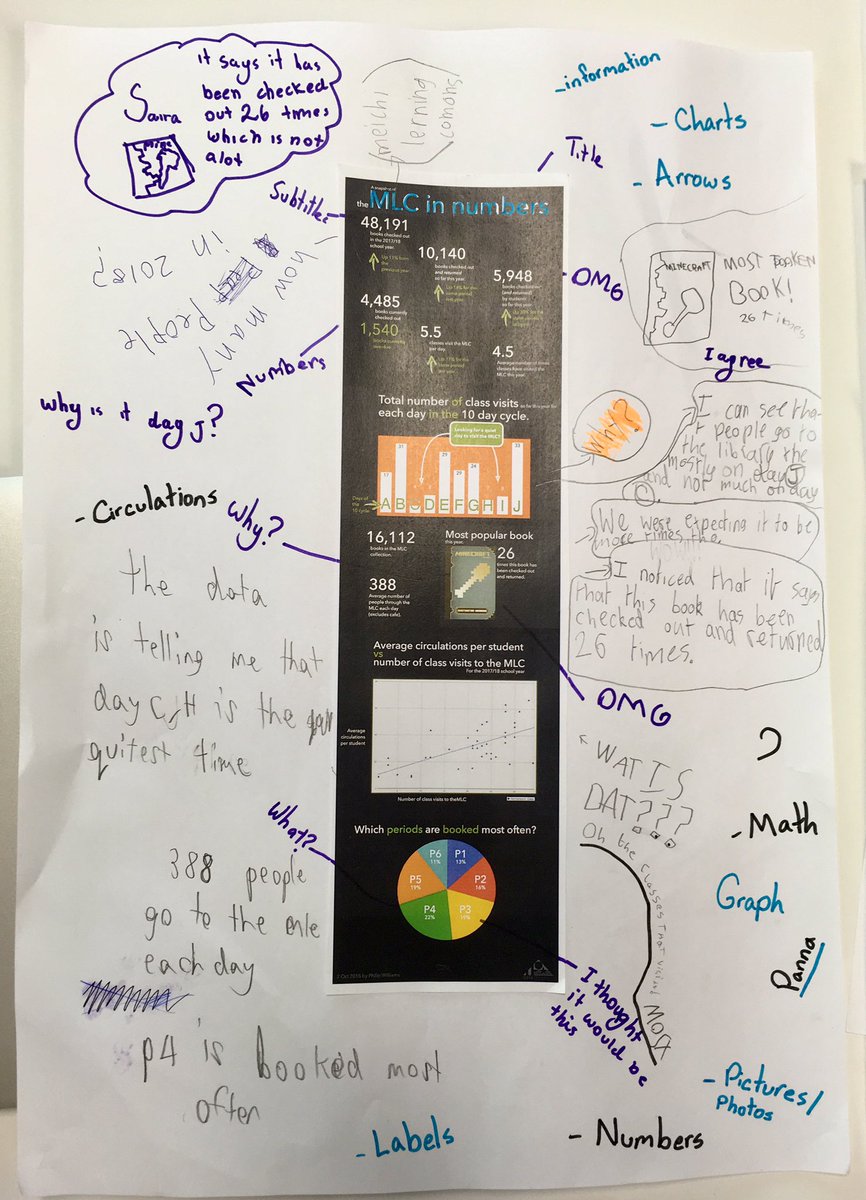 it says it has
been checked
out 26 times
which is not
alot
Saira
meichi
lerning
comons
-information
- Charts
- Arrows
Title
Subtitle
OMG
how many
people
in 2018?
Numbers
Why is it dag J?
MINECRAFT
MOST BOOKEN
BOOK!
26 times
I agree
Why?
I can see tha
t people go to
the library the
mostly on day J
and not much on day
C.
We were expeding it to be
more times the
I noticed that it says
that this book has been
checked out and returned
26 times.
- Circulations
Why?
the data
is telling me that
day C, H is the
quitest time
OMG
WAT IS
DAT???
Oh the classes that visit
MOST
What?
388 people
go to the
each day
P4 is booked most
often
I thought
it would be
this
- Math
Graph
Panna
- Pictures/
Photos
- Labels
- Numbers
A snapshot of
the MLC in numbers
48,191
books checked out
in the 2017/18
school year.
Up 11% from
the
previous year.
10,140
books checked out
and returned
so far this year.
5,948
books checked out
(and returned)
by students
so far this year.
4,485
books currently
checked out.
1,540
books currently
overdue.
5.5
classes visit the MLC
per day.
4.5
Average number of times
classes have visited the
MLC this year.
Total number of class visits so far this year for
each day in the 10 day cycle.
Looking for a quiet
day to visit the MLC?
17
31
29
24
33
Days of the
10 cycle
A B C D E F G H I J
16,112
books in the MLC
collection.
388
Average number of
people through the
MLC each day
(excludes cafe).
Most popular book
this year.
MINECRAFT
26
times this book has
been checked out
and returned.
Average circulations per student
vs
number of class visits to the MLC
For the 2017/18 school year
Average
circulations
per student
Number of class visits to the MLC
Which periods are booked most often?
P6
11%
P1
13%
P5
19%
P2
16%
P4
22%
P3
19%